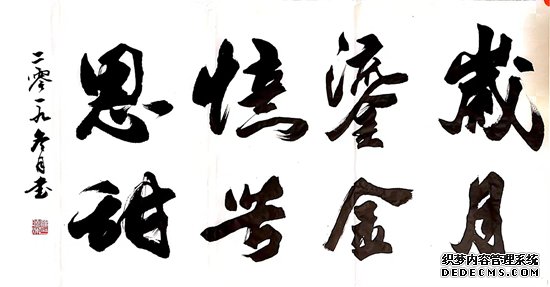 歲月
鎏金
憶苦
思甜
二零一九冬月書
织梦内容管理系统
DEDECMS.COM